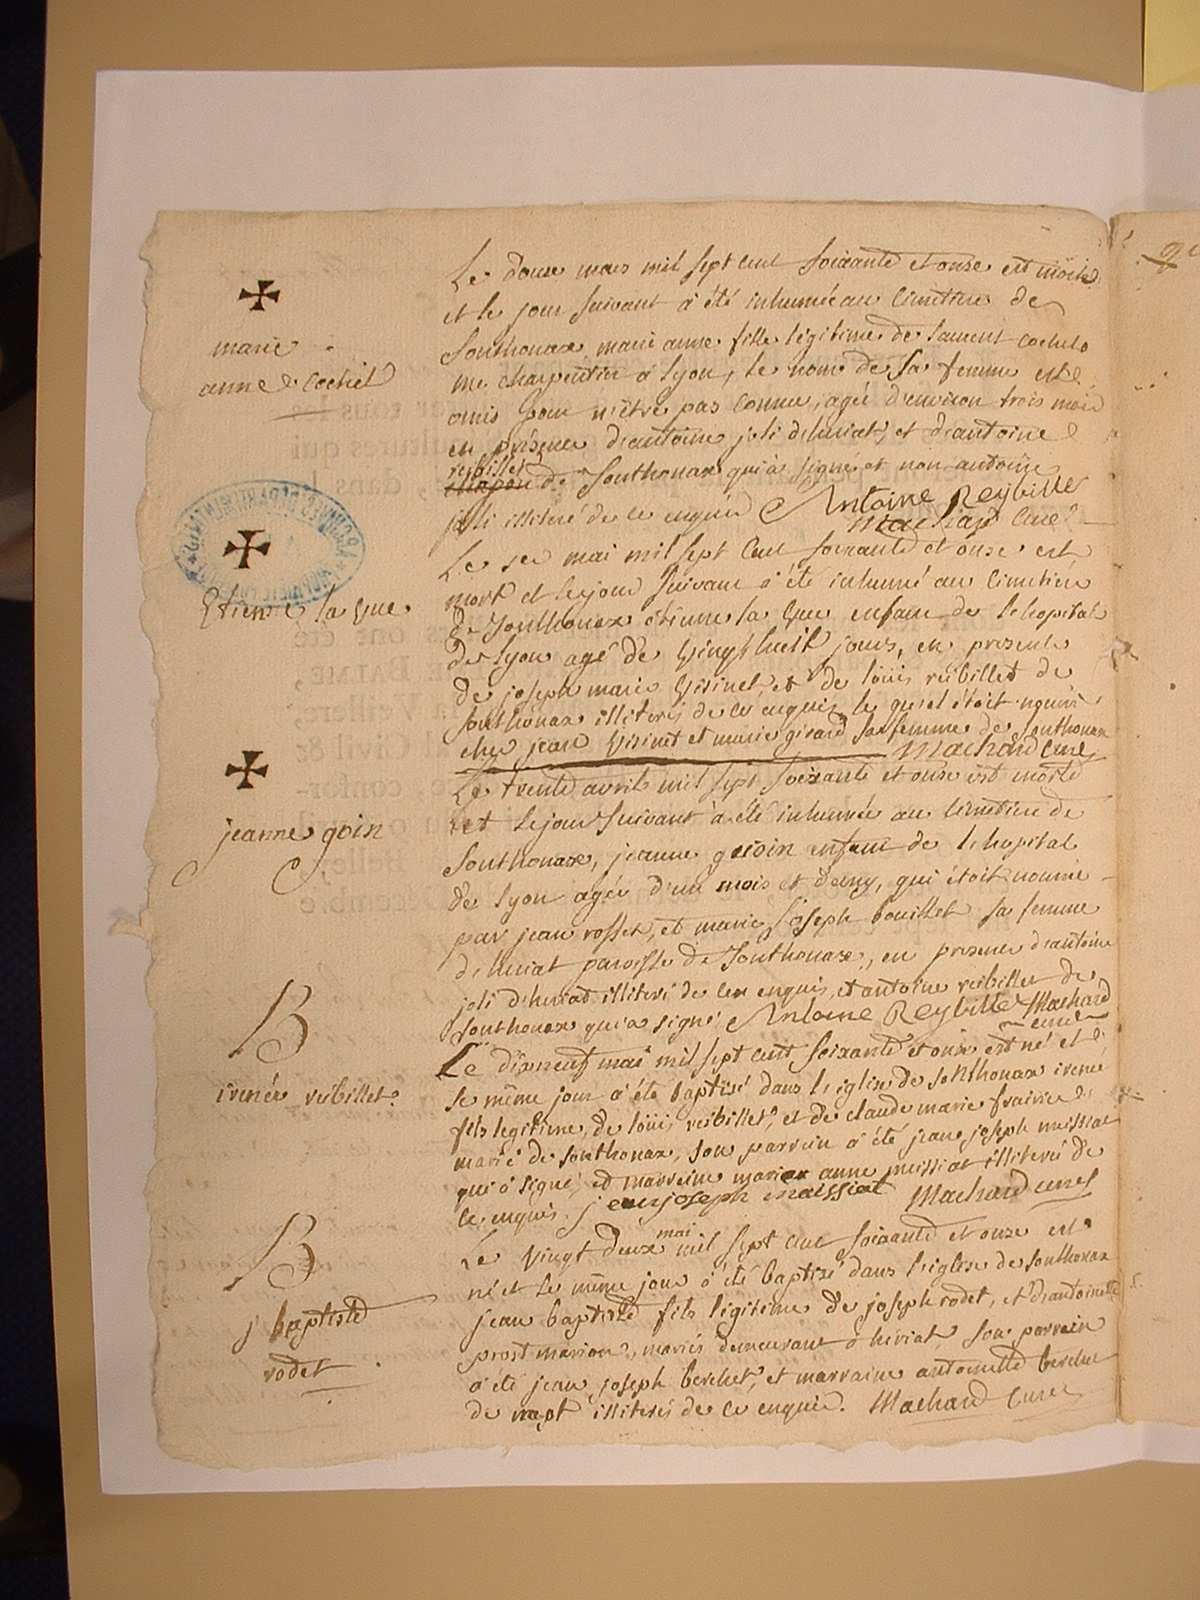 marie
anne Cochet
Le douze mars mil sept cent soixante et onze est morte
et le jour suivant a été inhumée au cimetiere de
Sonthonax marie anne fille légitime de laurent cochet
charpentier a lyon, le nom de sa femme est
omis pour n'être pas connue, agée d'environ trois mois
en présence d'antoine joli d'heiriat, et d'antoine
reibillet
de Sonthonax qui a signé et non antoine
joli illiteré de ce enquis Antoine Reybillet
Machard Curé
Etienne la Que
Le ser mai mil sept Cent soixante et onze est
mort et le jour suivant a été inhumé au cimetiére
de Sonthonax étienne la Que enfant de l'hopital
de lyon agé de vingt huit jours, en presence
de joseph marie Visinet, et de loüis reibillet de
Sonthonax illiterés de ce enquis, le quel étoit nourri
chez jean Visinet et marie girard sa femme de Sonthonax
Machard curé
jeanne goin
Le trente avril mil sept soixante et onze est morte
et le jour suivant à été inhumée au cimetiere de
Sonthonax, jeanne goin enfant de l'hopital
de lyon agée d'un mois et demy, qui étoit nourrie
par jean rosset, et marie joseph bouillet sa femme
d'heiriat paroisse de Sonthonax, en presence d'antoine
joli d'heiriat illiteré de ce enquis, et antoine reibillet de
Sonthonax qui a signé Antoine Reybillet Machard
curé
B
irenée reibillet
Le dixneuf mai mil sept cent soixante et onze est né et
le même jour a été baptisé dans l'église de Sonthonax irenée
fils legitime, de loüis reibillet, et de claude marie
mariés de Sonthonax, son parrain a été jean joseph meissiat
qui a signé, et marreine marie anne meissiat illiterée de
ce enquis. jean joseph maissiat Machard curé
B
j baptiste
rodet
mai
Le vingt deux mil sept cent soixante et onze est
né et le même jour a été baptisé dans l'église de Sonthonax
jean baptiste fils légitime de joseph rodet, et d'antoinette
prost marion, mariés demeurant a heiriat, son parrein
a été jean joseph berchet, et marraine antoinette berchet
de napt illiterés de ce enquis. Machard Curé